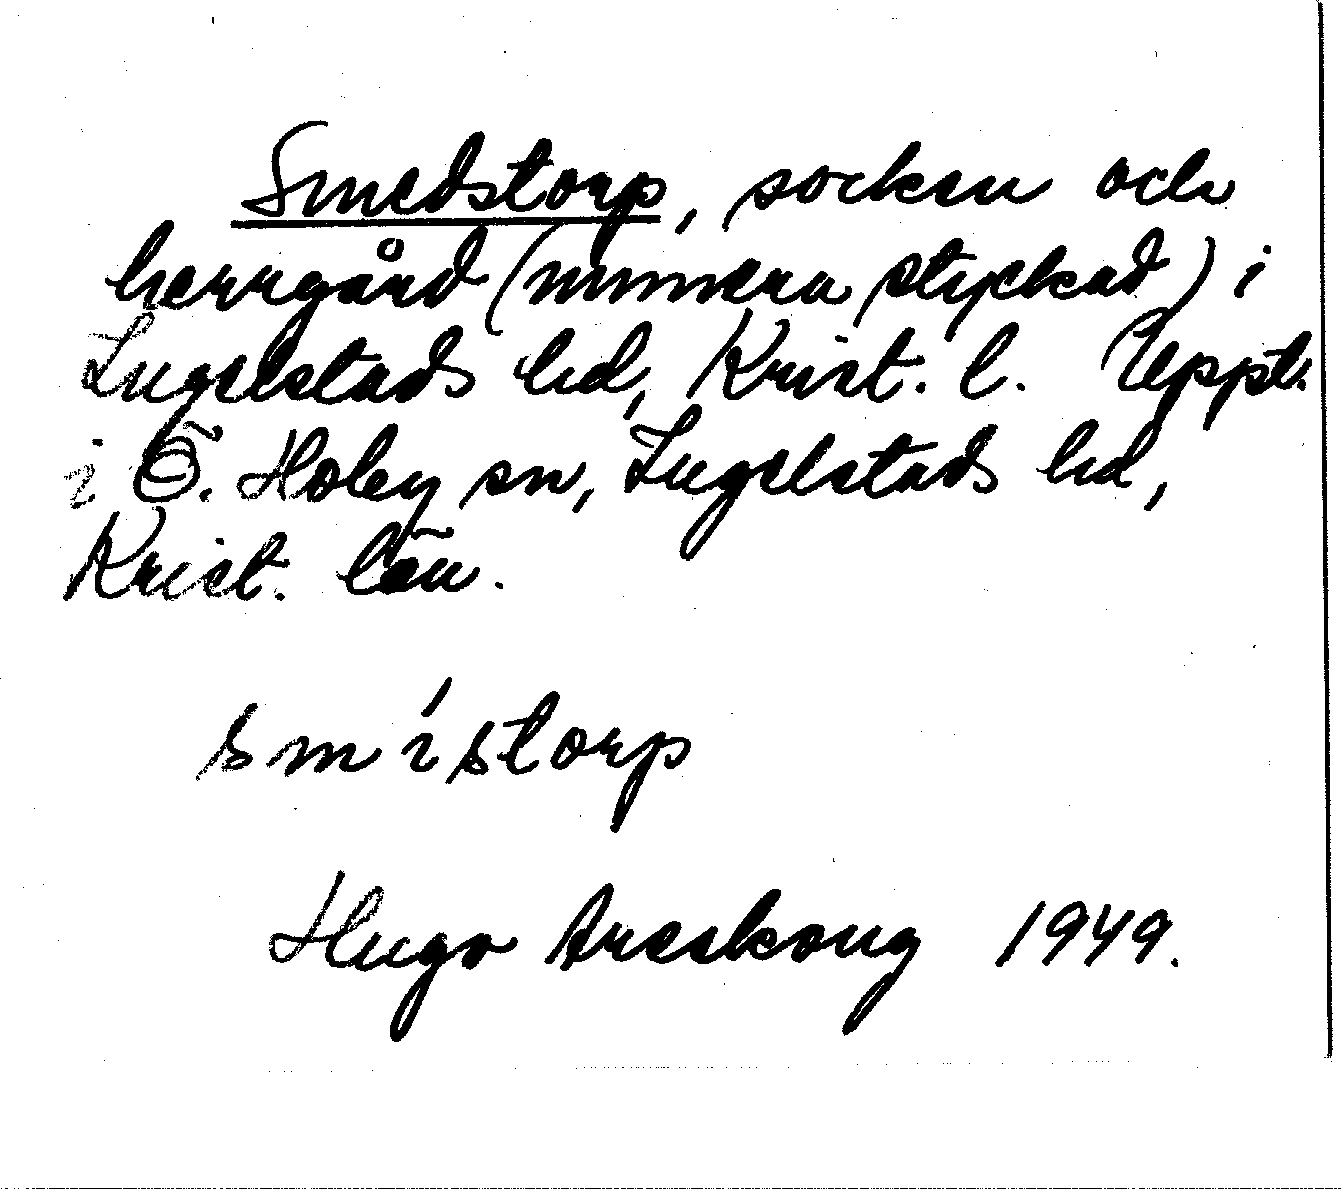 Smedstorp, socken och
herrgård (nummera styckad) i
Ingelstads hd, Krist. l. Uppt.
i Ö. Hoby sn, Ingelstads hd,
Krist. län.
smístorp
Hugo Areskoug 1949.